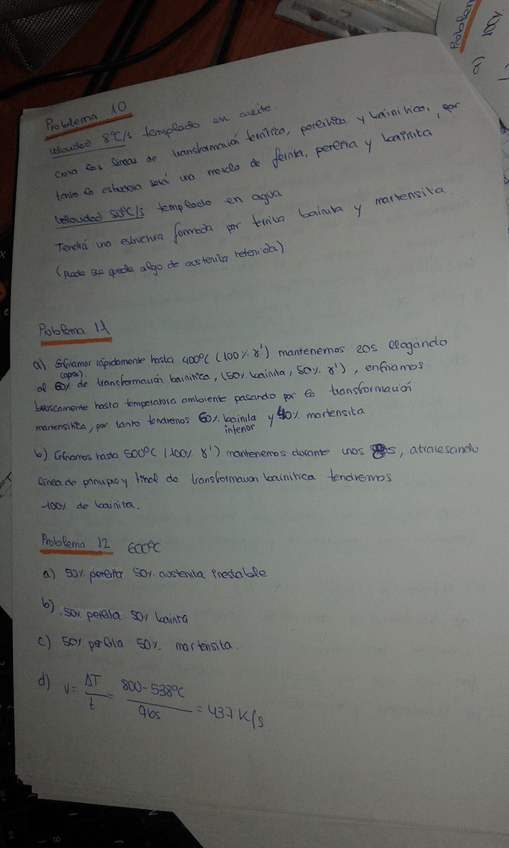 Problema 10
Velocidad 8°C/s templado en aceite.
corta las líneas de transformación ferrítica, perlítica y bainítica, por
tanto la estructura será una mezcla de ferrita, perlita y bainita
Velocidad 50°C/s templado en agua
Tendrá una estructura formada por ferrita bainita y martensita.
(puede se quede algo de austenita retenida)
Problema 11
a) Enfriamos rápidamente hasta 400°C (100% γ') mantenemos 20s llegando
al 60% de transformación bainítica, (50% bainita, 50% γ'), enfriamos
(aprox)
bruscamente hasta temperatura ambiente pasando por la transformación
martensítica, por tanto tendremos 60% bainita y 40% martensita
inferior
b) Enfriamos hasta 500°C (100% γ') mantenemos durante unos s, atravesando
línea de principio y final de transformación bainítica tendremos
100% de bainita.
Problema 12 600°C
a) 50% perlita 50% austenita inestable
b) 50% perlita 50% bainita
c) 50% perlita 50% martensita.
d) V = ΔT/t = 800-538°C / = 437 K/s
Problem
a) 100%